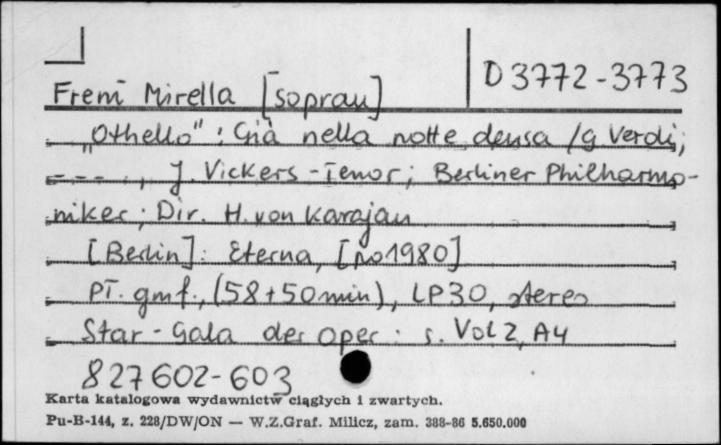 D 3772-3773
Freni Mirella [sopran]
„Othello": Già nella notte densa /G Verdi;
- - - . , J. Vickers - Tenor; Berliner Philharmo-
niker; Dir. H. von Karajan
[Berlin]: Eterna, [po 1980]
Pł. gmf., (58+50 min), LP30, stereo
Star-Gala der Oper: s. Vol 2, A4
827602-603
Karta katalogowa wydawnictw ciągłych i zwartych.
Pu-B-144, z. 228/DW/ON — W.Z.Graf. Milicz, zam. 388-86 5.650.000